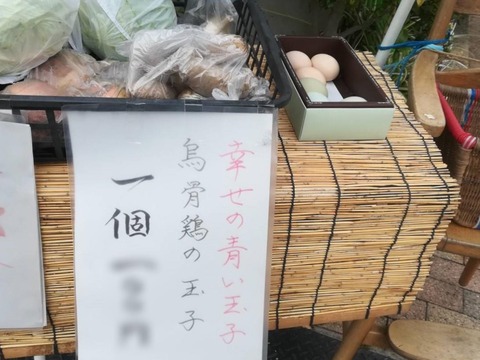 幸せの青い玉子
烏骨鶏の玉子
一個